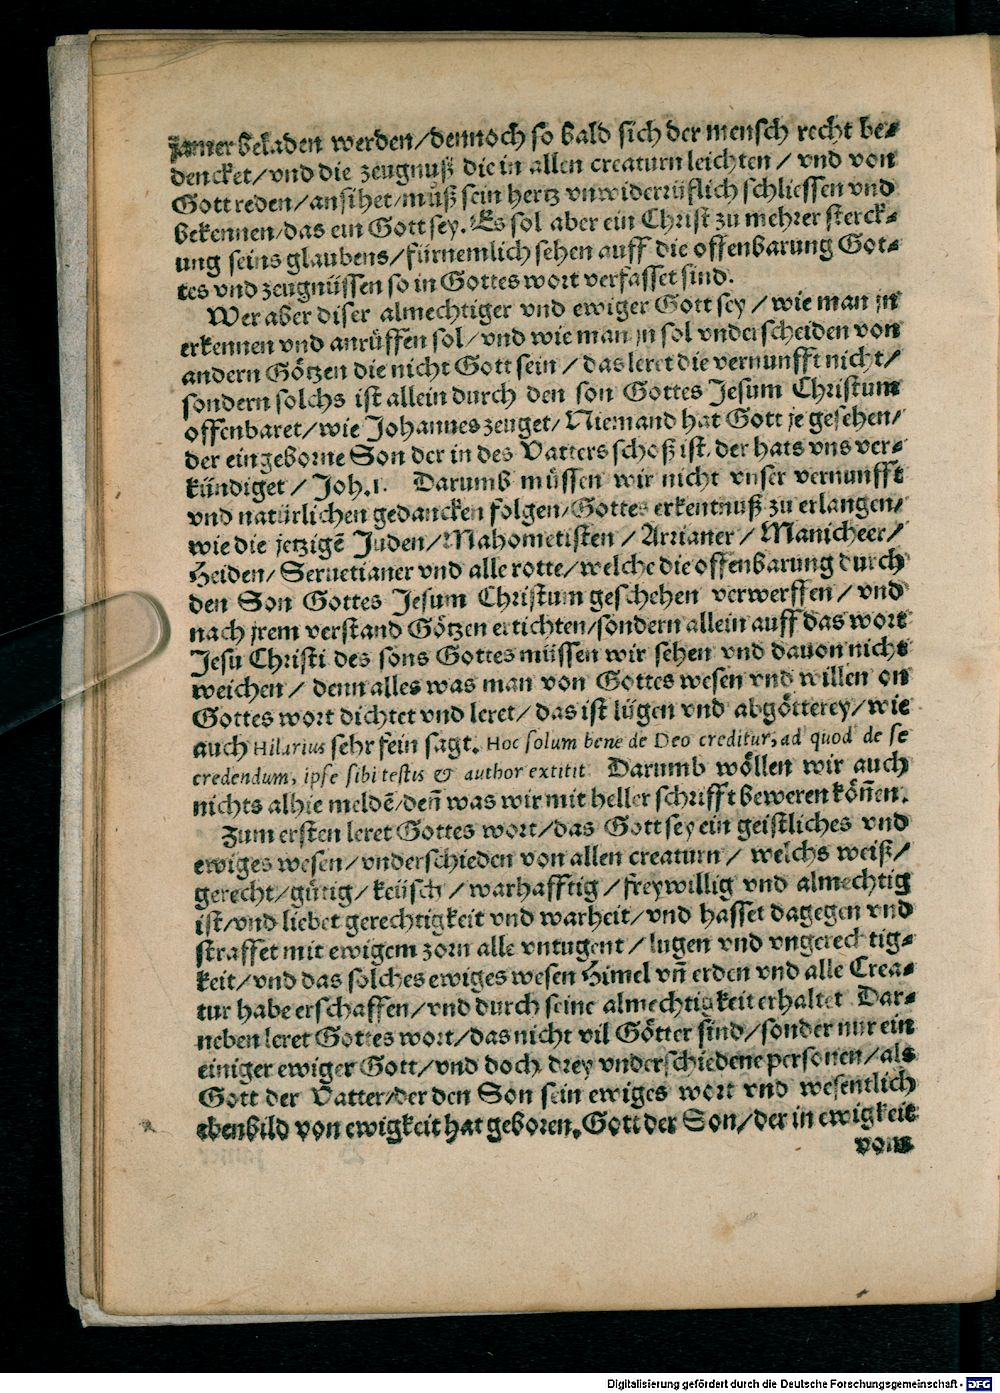 jamer beladen werden/dennoch so bald sich der mensch recht be-
dencket/vnd die zeugnuß die in allen creaturn leichten / vnd von
Gott reden/ansihet/muß sein hertz vnwiderrüfflich schliessen vnd
bekennen/das ein Gott sey. Es sol aber ein Christ zu mehrer sterck-
ung seins glaubens/fürnemlich sehen auff die offenbarung Got-
tes vnd zeugnüssen so in Gottes wort verfasset sind.
Wer aber diser almechtiger vnd ewiger Gott sey / wie man jn
erkennen vnd anrüffen sol/vnd wie man jn sol vnderscheiden von
andern Götzen die nicht Gott sein / das leret die vernunfft nicht/
sondern solchs ist allein durch den son Gottes Jesum Christum
offenbaret/wie Johannes zeuget/Niemand hat Gott je gesehen/
der eingeborne Son der in des Vatters schoß ist, der hats vns ver-
kündiget / Joh.1. Darumb müssen wir nicht vnser vernunfft
vnd natürlichen gedancken folgen/Gottes erkentnuß zu erlangen/
wie die jetzigē Juden/Mahometisten / Arrianer / Manicheer/
Heiden/Seruetianer vnd alle rotte/welche die offenbarung durch
den Son Gottes Jesum Christum geschehen verwerffen / vnd
nach jrem verstand Götzen ertichten/sondern allein auff das wort
Jesu Christi des sons Gottes müssen wir sehen vnd dauon nicht
weichen / denn alles was man von Gottes wesen vnd willen on
Gottes wort dichtet vnd leret/das ist lügen vnd abgötterey/wie
auch Hilarius sehr fein sagt. Hoc solum bene de Deo creditur, ad quod de se
credendum, ipse sibi testis & author extitit Darumb wöllen wir auch
nichts alhie meldē/deñ was wir mit heller schrifft beweren köñen.
Zum ersten leret Gottes wort/das Gott sey ein geistliches vnd
ewiges wesen/vnderschieden von allen creaturn / welchs weiß/
gerecht/gütig/keüsch / warhafftig / freywillig vnd almechtig
ist/vnd liebet gerechtigkeit vnd warheit/vnd hasset dagegen vnd
straffet mit ewigem zorn alle vntugent / lugen vnd vngerechtig-
keit/vnd das solches ewiges wesen Himel vñ erden vnd alle Crea-
tur habe erschaffen/vnd durch seine almechtigkeit erhaltet Dar-
neben leret Gottes wort/das nicht vil Götter sind/sonder nur ein
einiger ewiger Gott/vnd doch drey vnderschiedene personen/als
Gott der Vatter/der den Son sein ewiges wort vnd wesentlich
ebenbild von ewigkeit hat geboren. Gott der Son/der in ewigkeit
vom
Digitalisierung gefördert durch die Deutsche Forschungsgemeinschaft - DFG